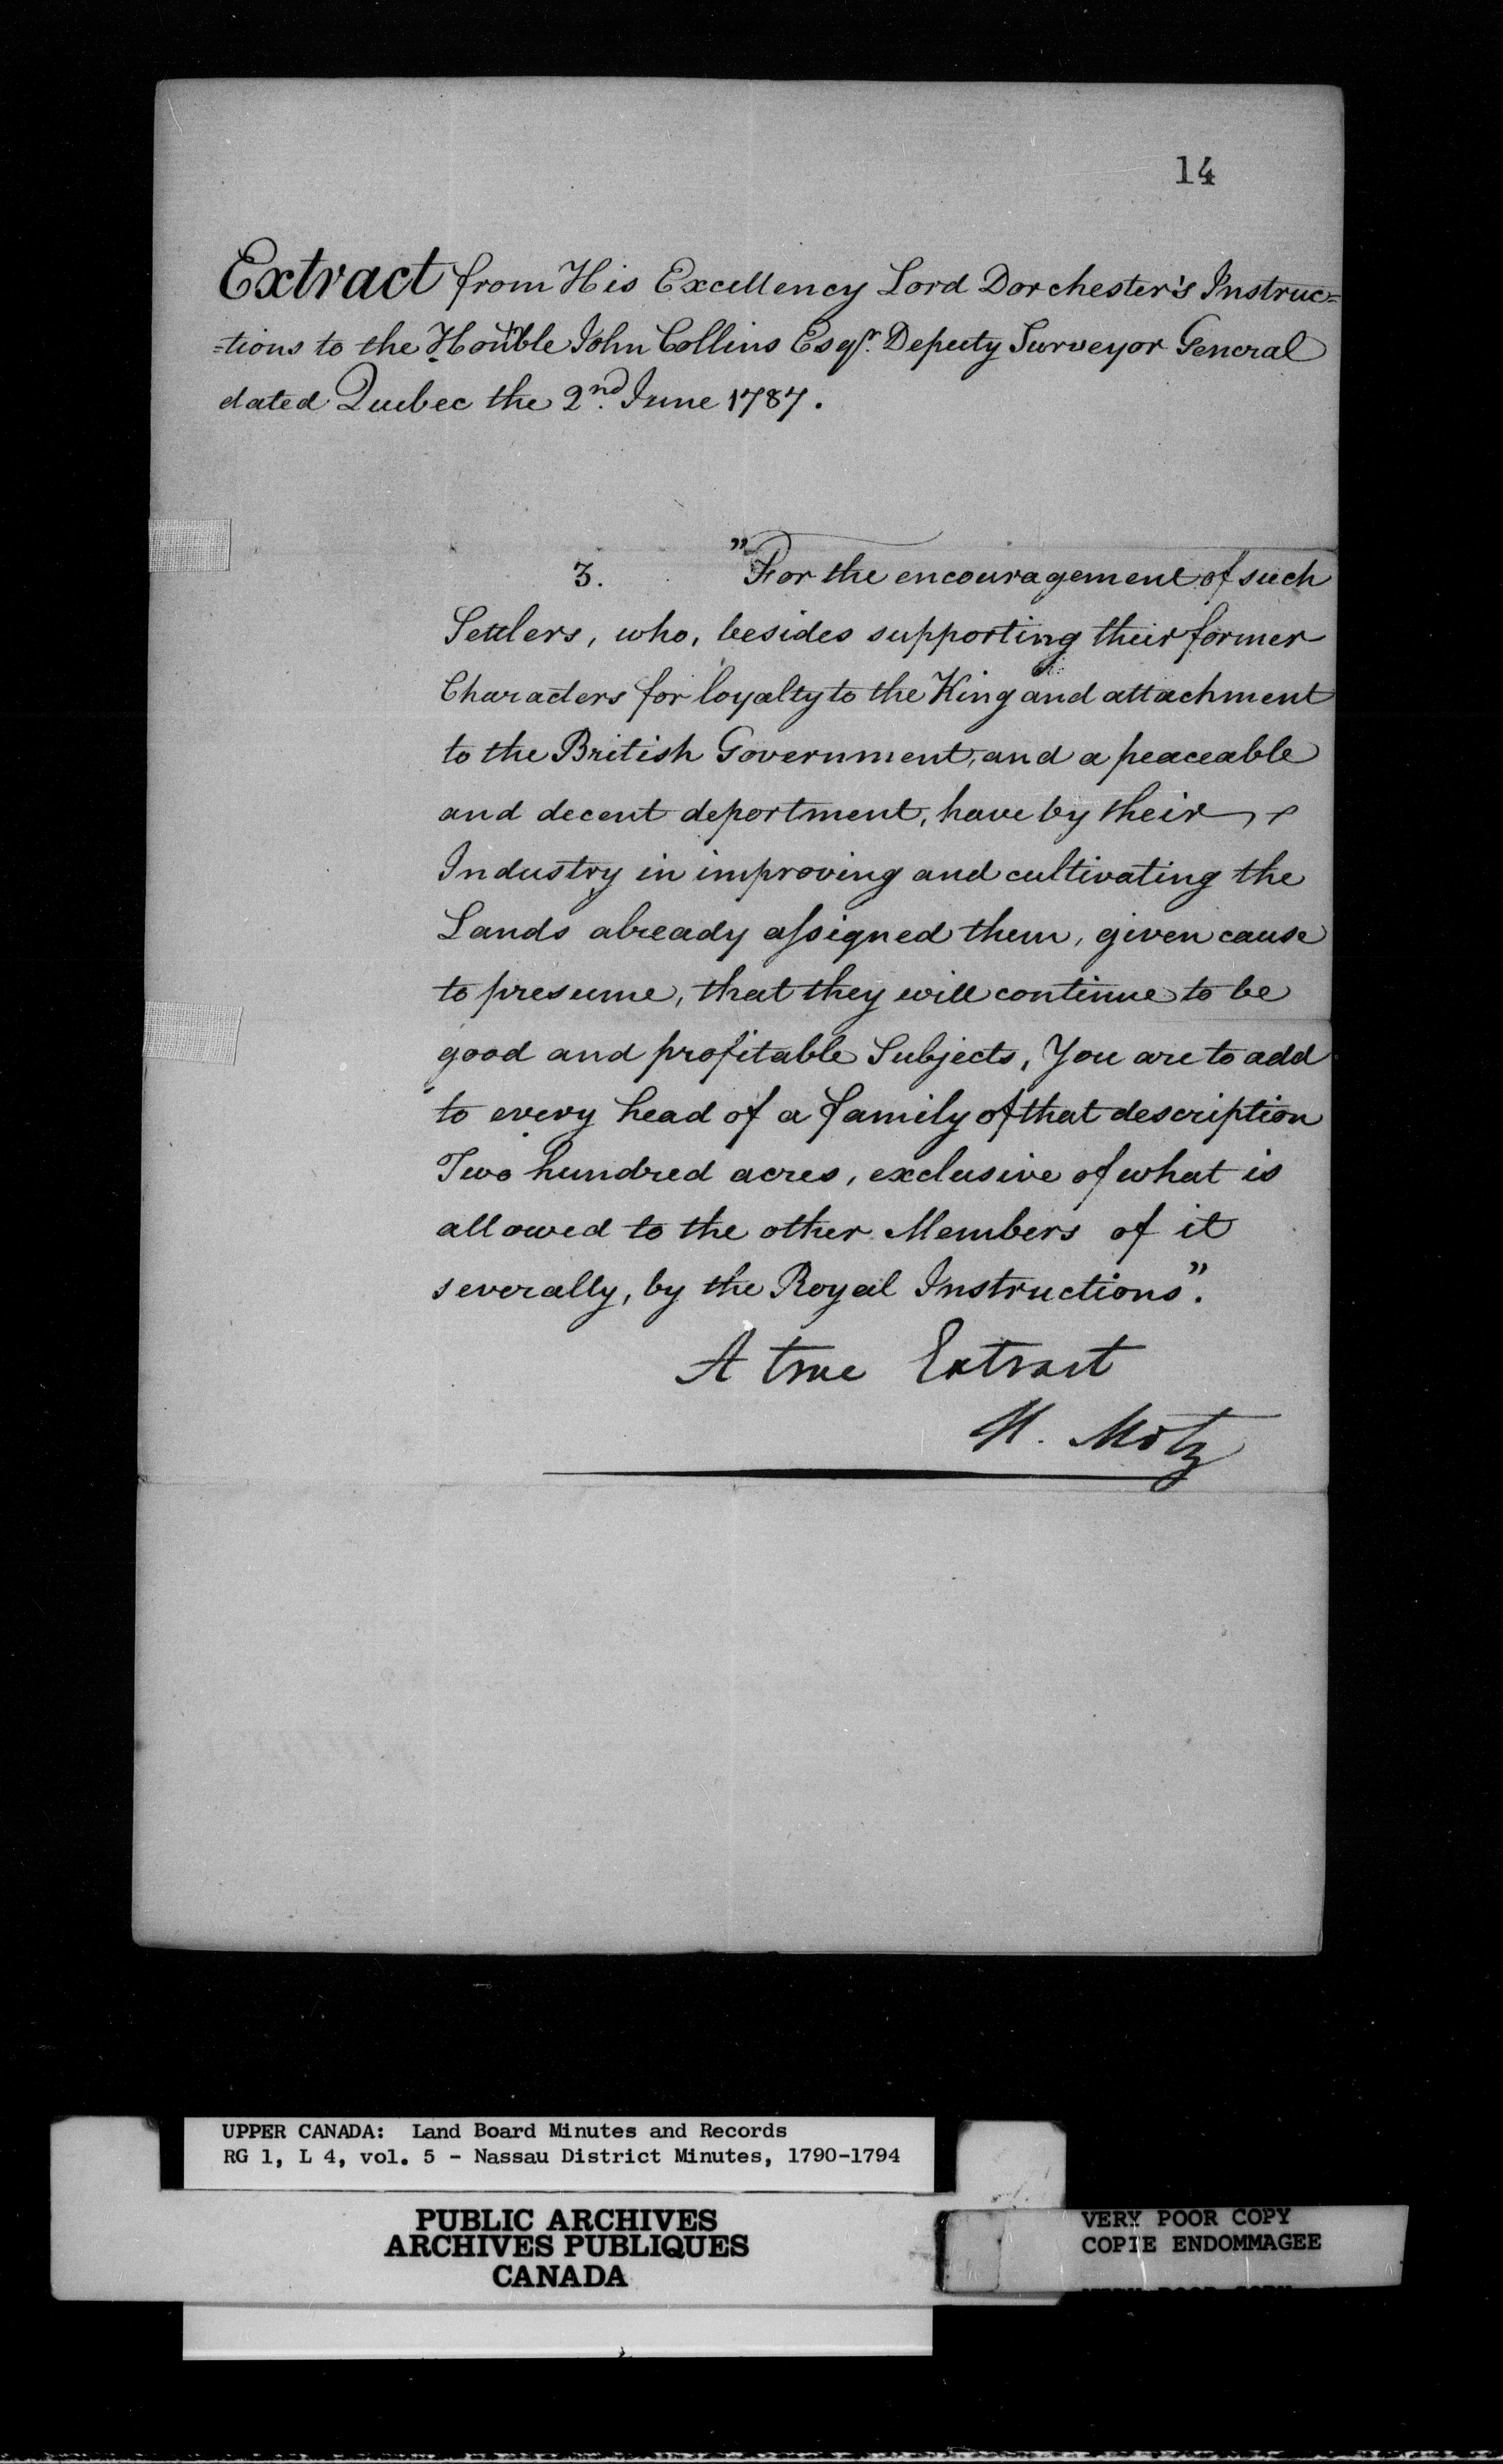 14
Extract from His Excellency Lord Dorchester's Instruc=
=tions to the Honble John Collins Esqr. Deputy Surveyor General
dated Quebec the 2nd. June 1787.
3. "For the encouragement of such
Settlers, who, besides supporting their former
Characters for loyalty to the King and attachment
to the British Government, and a peaceable
and decent deportment, have by their
Industry in improving and cultivating the
Lands already assigned them, given cause
to presume, that they will continue to be
good and profitable Subjects, You are to add
to every head of a family of that description
Two hundred acres, exclusive of what is
allowed to the other Members of it
severally, by the Royal Instructions".
A true Extract
H. Motz
UPPER CANADA: Land Board Minutes and Records
RG 1, L 4, vol. 5 - Nassau District Minutes, 1790-1794
PUBLIC ARCHIVES
ARCHIVES PUBLIQUES
CANADA
VERY POOR COPY
COPIE ENDOMMAGEE